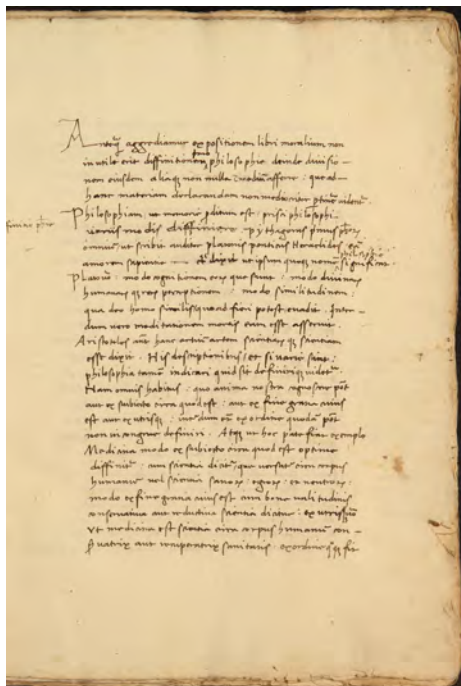 Anteq̃ aggrediamur expositionem libri moralium non
inutile erit diffinitionem philosophie deinde divisio-
nem eiusdem aliaq non nulla in medium afferre : que ad
hanc materiam declarandam non mediocriter videntʳ
Philosophiam ut memorie proditum est : prisci philosophi
variis modis diffiniere . pythagoras primus
omnium ut scribit auditor platonis ponticus Heraclides
amorem sapientie dixit ut ipsum quoq nomen significat
philosophie
Platonici : modo cognitionem eorum que sunt : modo divinarum
humanarumq rerum perceptionem : modo similitudinem :
qua deo homo similis quoad fieri potest evadit . Inter-
dum vero meditationem mortis eam esse asserunt .
Aristoteles aūt hanc artium artem scientiarumq scientiam
esse dixit . His descriptionibus / et si variis sint :
philosophia tamen indicari quid sit definiriq videtʳ
Nam omnis habitus : quo anima nostra agnoscere pōt
aut ex subiecto circa quod est : aut ex fine gratia cuius
est aut ex utrisq : interdum et ex ordine quodā pōt
non incongrue definiri . Atq ut hoc patefiat exemplo
Medicina modo ex subiecto circa quod est optime
diffinitʳ : cum scientia dicatʳ que versatʳ circa corpus
humanum vel scientia sanorum egrorum et neutrorum :
modo ex fine gratia cuius est cum bone valitudinis
conservativa aut reductiva scientia dicatur : ex utrisq
ut medicina est scientia circa corpus humanum con-
servatrix aut recuperatrix sanitatis . ex ordine fit